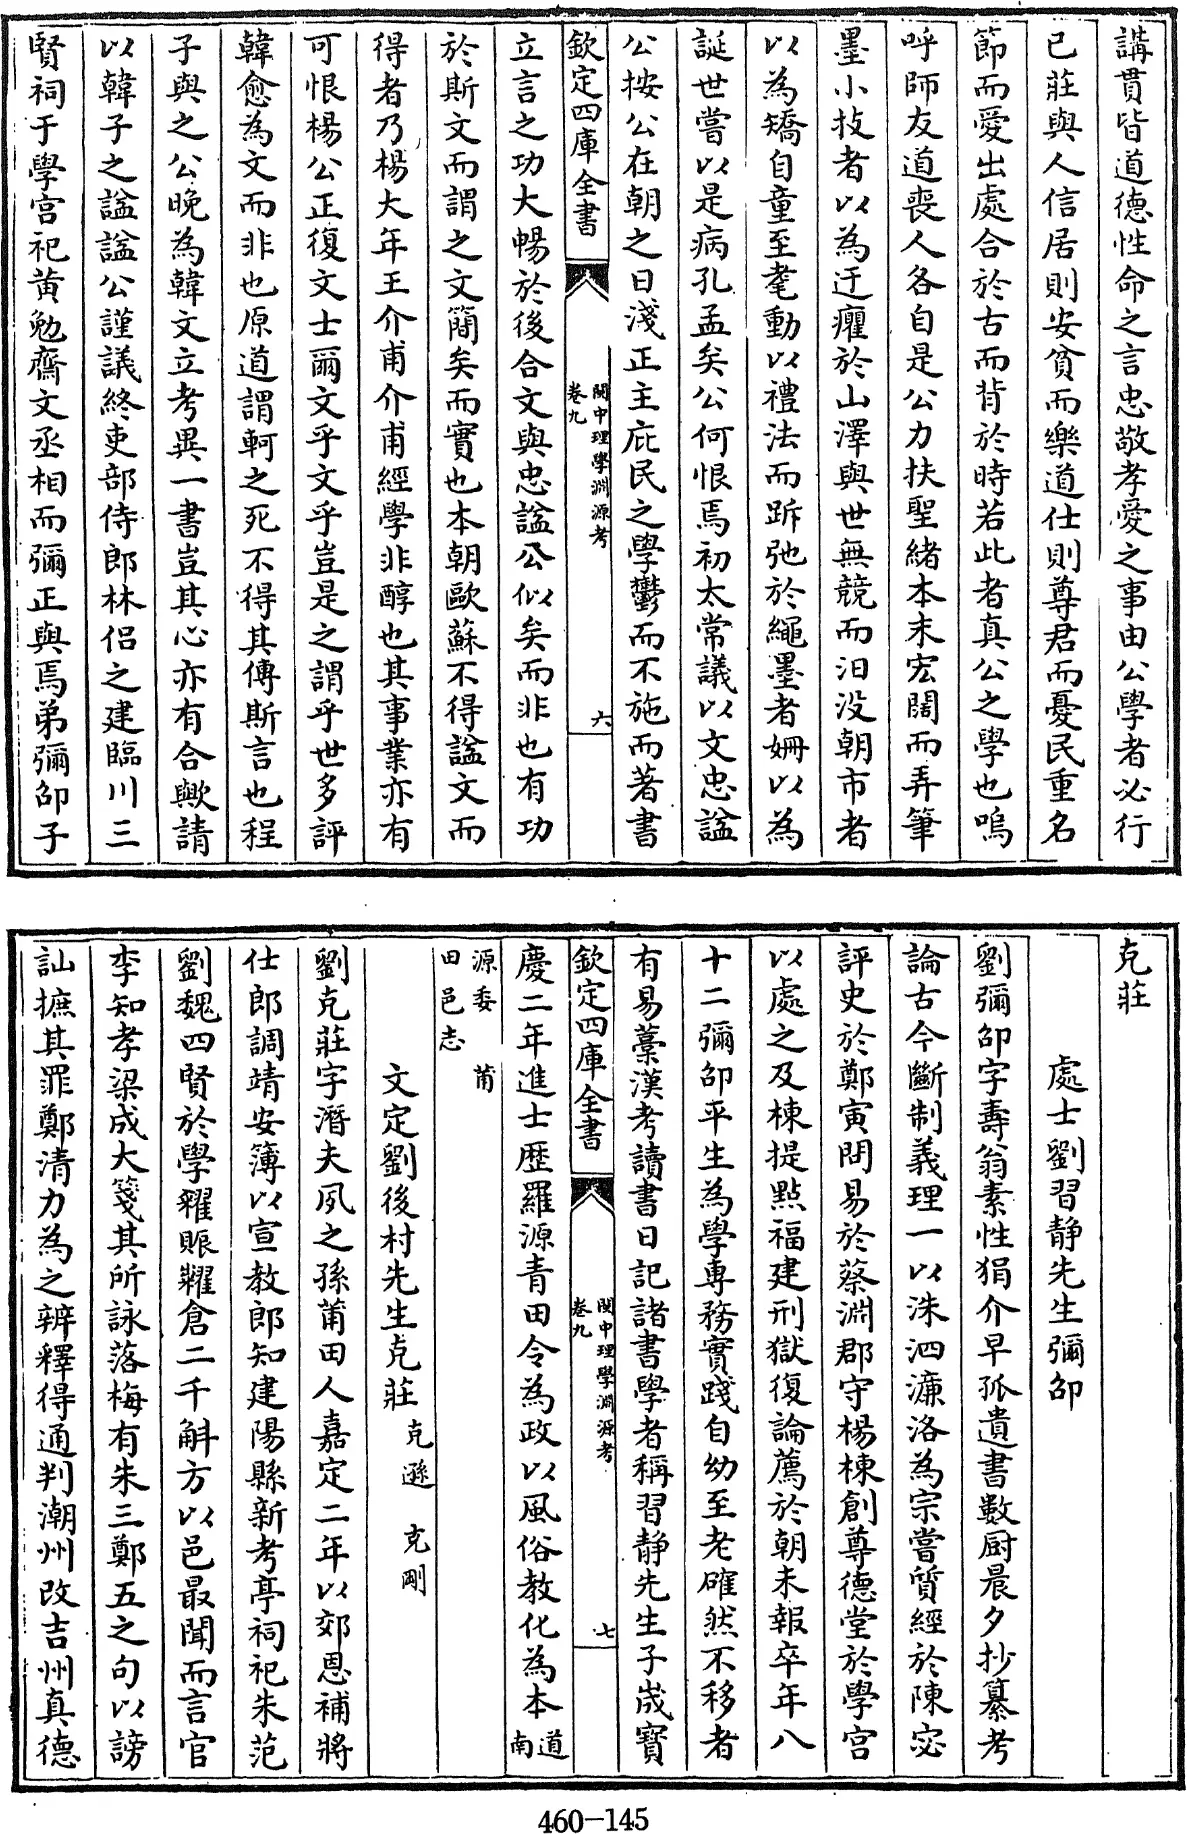 講貫皆道德性命之言忠敬孝愛之事由公學者必行
己莊與人信居則安貧而樂道仕則尊君而憂民重名
節而愛出處合於古而背於時若此者真公之學也嗚
呼師友道喪人各自是公力扶聖緒本末宏闊而弄筆
墨小技者以為迂癯於山澤與世無競而汨没朝市者
以為矯自童至耄動以禮法而跅弛於繩墨者姍以為
誕世嘗以是病孔孟矣公何恨焉初太常議以文忠諡
公按公在朝之日淺正主庇民之學鬱而不施而著書
欽定四庫全書
閩中理學淵源考
卷九
六
立言之功大暢於後合文與忠諡公似矣而非也有功
於斯文而謂之文簡矣而實也本朝歐蘇不得諡文而
得者乃楊大年王介甫介甫經學非醇也其事業亦有
可恨楊公正復文士爾文乎文乎豈是之謂乎世多評
韓愈為文而非也原道謂軻之死不得其傳斯言也程
子與之公晚為韓文立考異一書豈其心亦有合歟請
以韓子之諡諡公謹議終吏部侍郎林侣之建臨川三
賢祠于學宫祀黄勉齋文丞相而彌正與焉弟彌卲子
克莊
處士劉習静先生彌卲
劉彌卲字壽翁素性狷介早孤遺書數厨晨夕抄纂考
論古今斷制義理一以洙泗濂洛為宗嘗質經於陳宓
評史於鄭寅問易於蔡淵郡守楊棟創尊德堂於學宫
以處之及棟提點福建刑獄復論薦於朝未報卒年八
十二彌卲平生為學專務實踐自幼至老確然不移者
有易藁漢考讀書日記諸書學者稱習静先生子崴寶
欽定四庫全書
閩中理學淵源考
卷九
七
慶二年進士歴羅源青田令為政以風俗教化為本道南
源委 莆
田邑志
文定劉後村先生克莊 克遜 克剛
劉克莊字潛夫夙之孫莆田人嘉定二年以郊恩補將
仕郎調靖安簿以宣教郎知建陽縣新考亭祠祀朱范
劉魏四賢於學糴賑糶倉二千斛方以邑最聞而言官
李知孝梁成大箋其所詠落梅有朱三鄭五之句以謗
訕摭其罪鄭清力為之辨釋得通判潮州改吉州真德
460-145